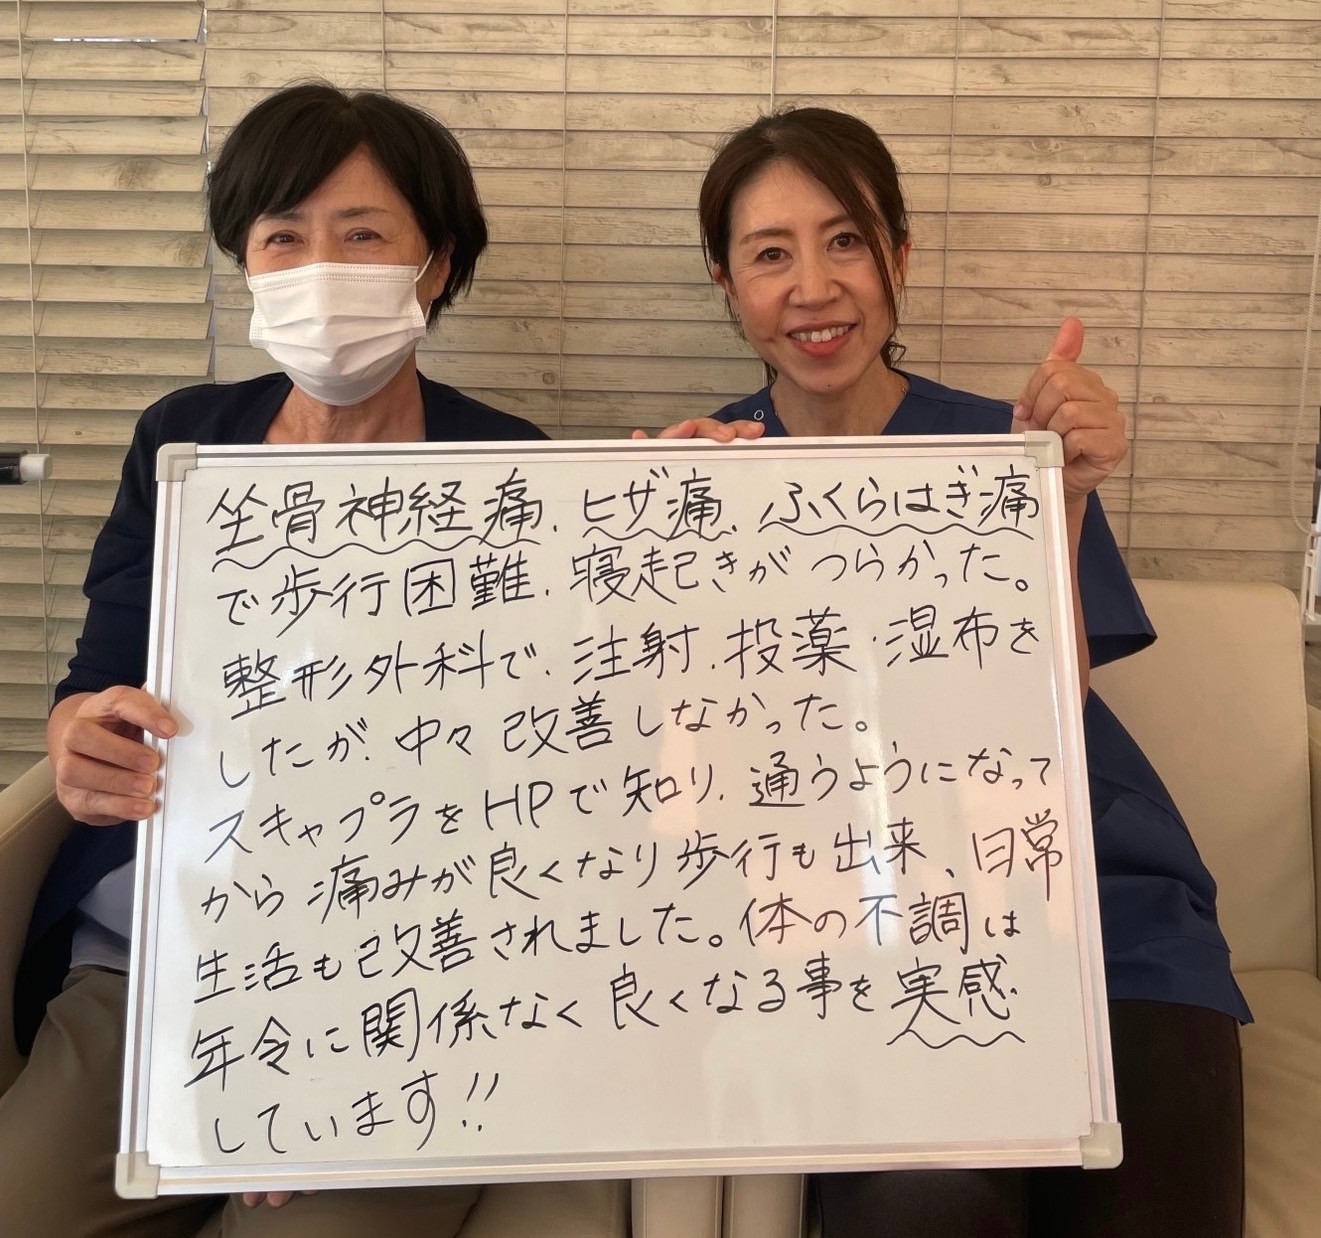 坐骨神経痛、ヒザ痛、ふくらはぎ痛
で歩行困難、寝起きがつらかった。
整形外科で、注射、投薬・湿布を
したが、中々改善しなかった。
スキャプラをHPで知り、通うようになって
から痛みが良くなり歩行も出来、日常
生活も改善されました。体の不調は
年令に関係なく良くなる事を実感
しています!!